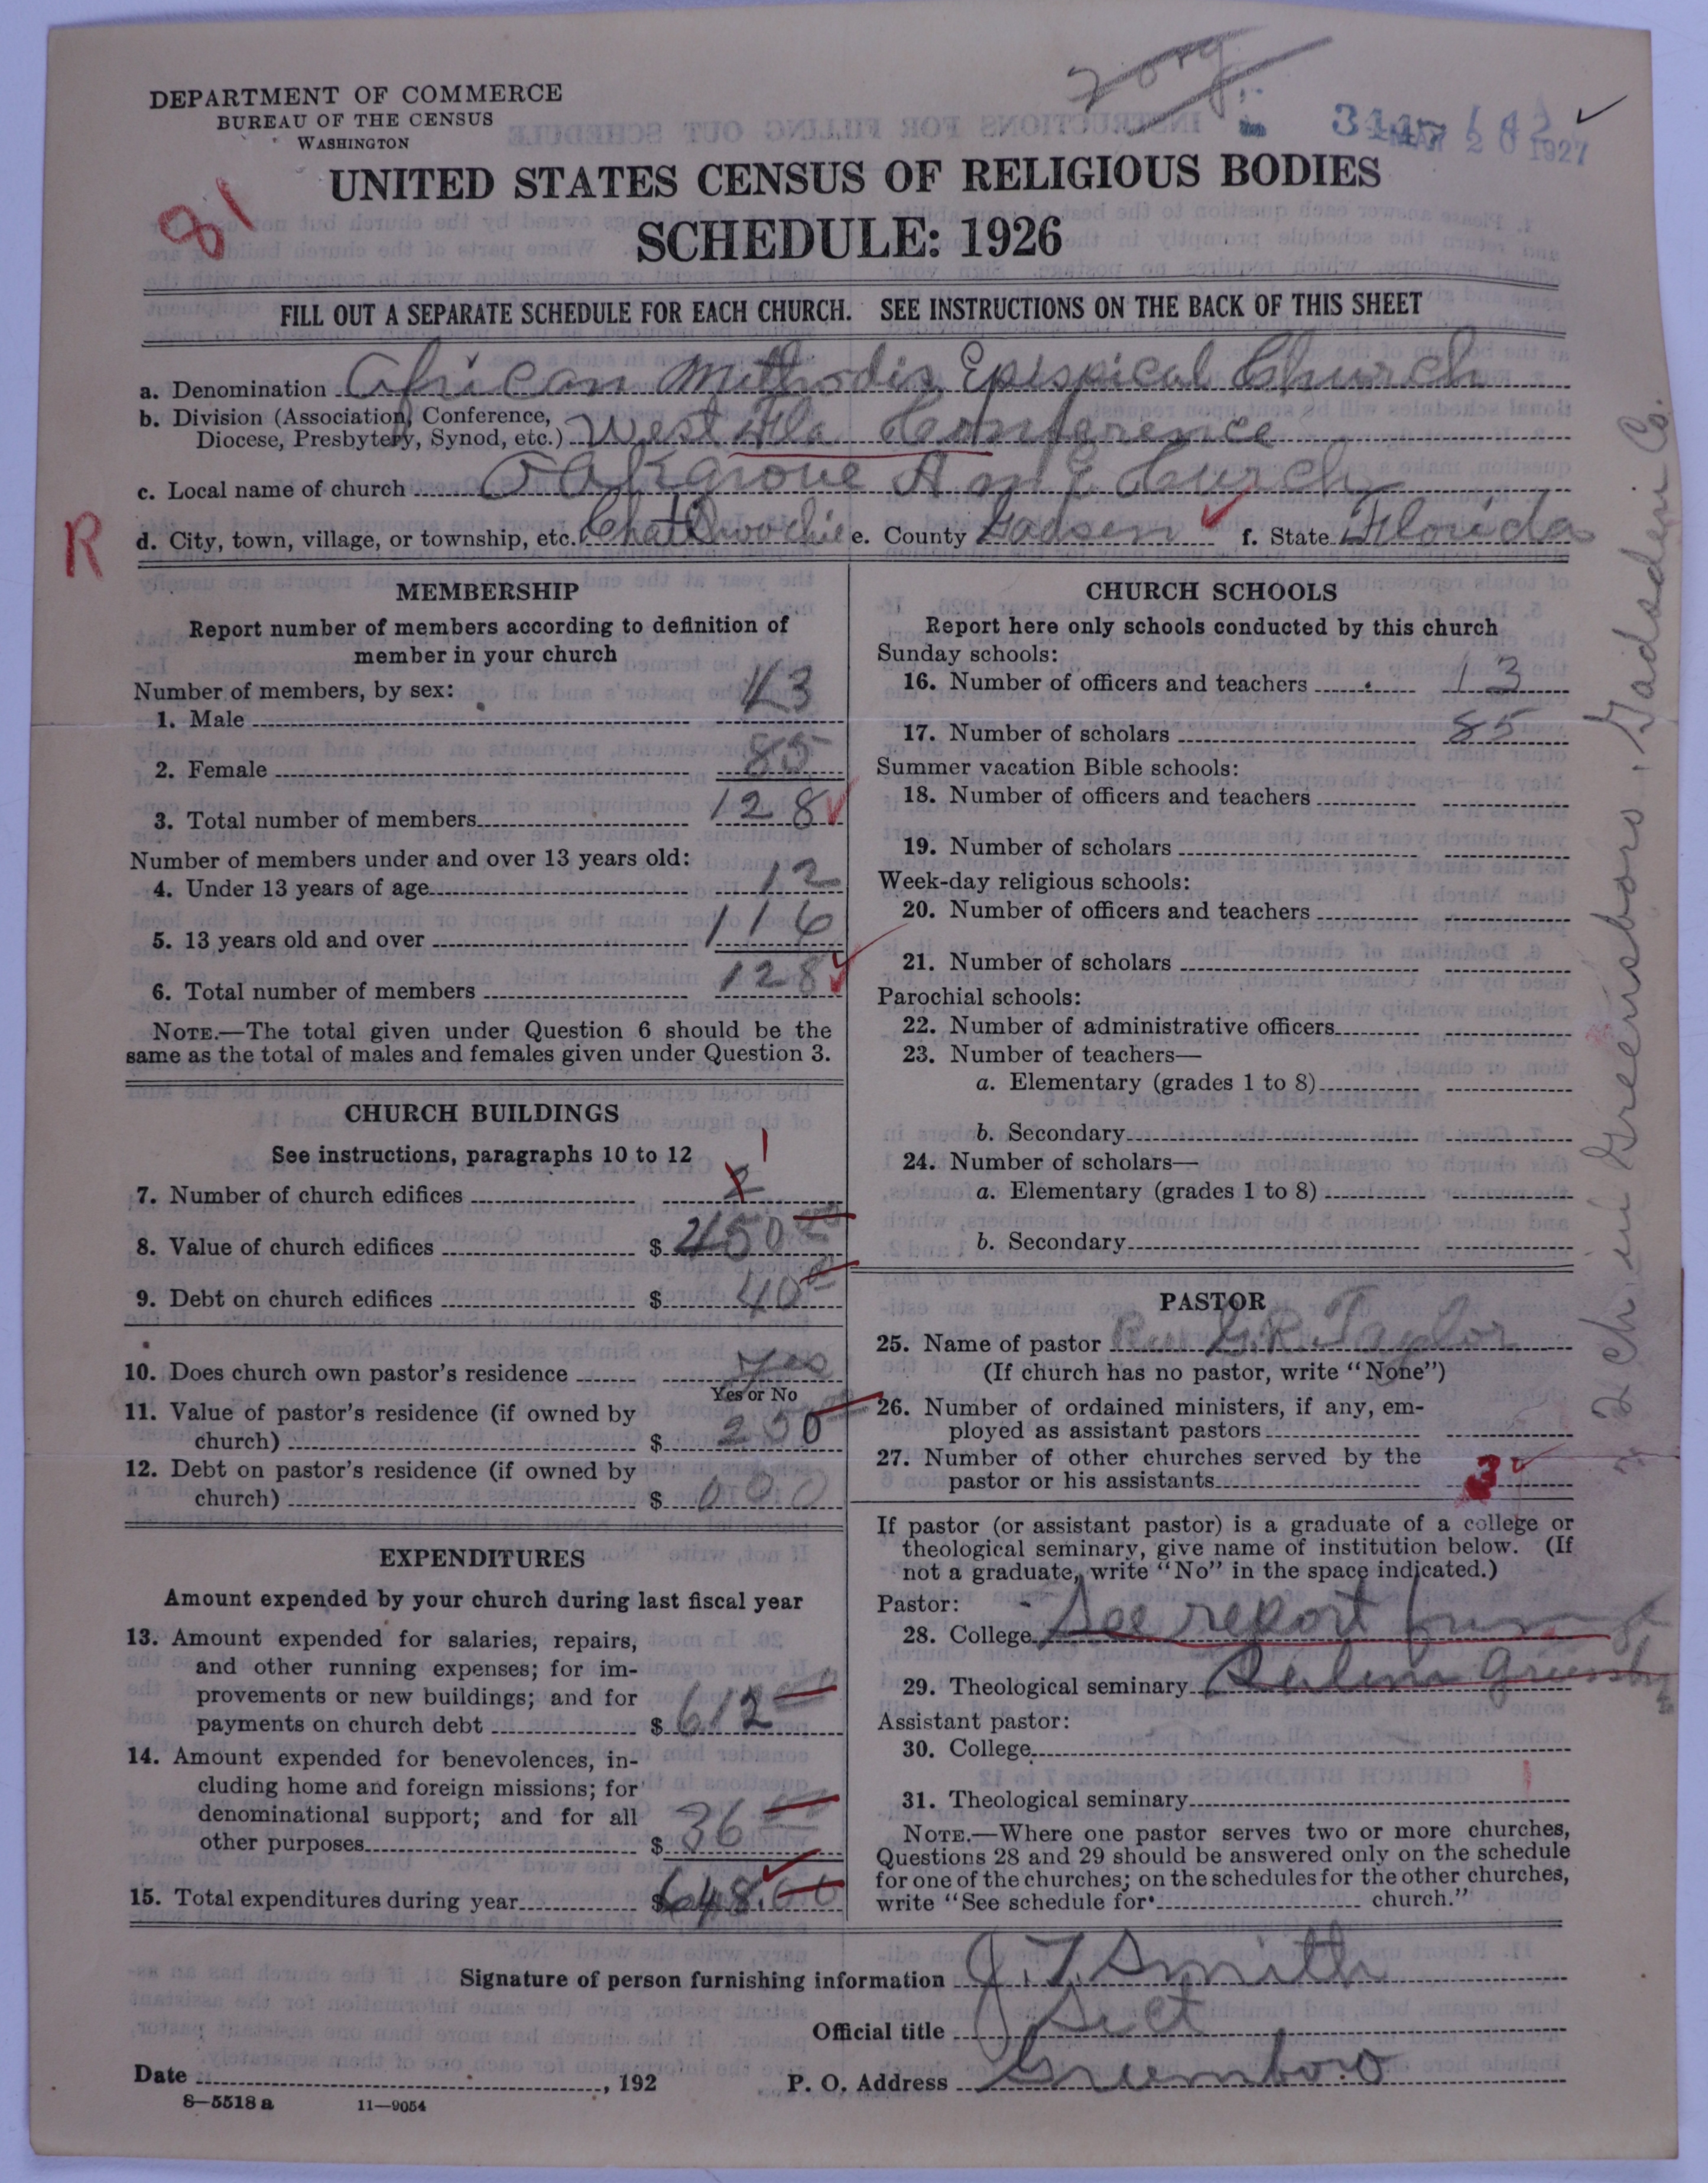 2 org
DEPARTMENT OF COMMERCE
BUREAU OF THE CENSUS
WASHINGTON
MAR 28 1927
81
UNITED STATES CENSUS OF RELIGIOUS BODIES
SCHEDULE: 1926
FILL OUT A SEPARATE SCHEDULE FOR EACH CHURCH. SEE INSTRUCTIONS ON THE BACK OF THIS SHEET
a. Denomination African Methodis Epispical Church
b. Division (Association, Conference,
Diocese, Presbytery, Synod, etc.) West Fla Conference
c. Local name of church Oakgrove A M E Church
R
d. City, town, village, or township, etc. e. County Gadsen f. State Florida
MEMBERSHIP
Report number of members according to definition of
member in your church
Number of members, by sex:
1. Male 43
2. Female 85
3. Total number of members 128
Number of members under and over 13 years old:
4. Under 13 years of age 12
5. 13 years old and over 116
6. Total number of members 128
NOTE.—The total given under Question 6 should be the
same as the total of males and females given under Question 3.
CHURCH BUILDINGS
See instructions, paragraphs 10 to 12
7. Number of church edifices 2 1
8. Value of church edifices $ 450 00
9. Debt on church edifices $ 40 00
10. Does church own pastor's residence Yes
Yes or No
11. Value of pastor's residence (if owned by
church) $ 250
12. Debt on pastor's residence (if owned by
church) $ 000
EXPENDITURES
Amount expended by your church during last fiscal year
13. Amount expended for salaries, repairs,
and other running expenses; for im-
provements or new buildings; and for
payments on church debt $ 612 00
14. Amount expended for benevolences, in-
cluding home and foreign missions; for
denominational support; and for all
other purposes $ 36 00
15. Total expenditures during year $ 648.00
CHURCH SCHOOLS
Report here only schools conducted by this church
Sunday schools:
16. Number of officers and teachers 13
17. Number of scholars 85
Summer vacation Bible schools:
18. Number of officers and teachers
19. Number of scholars
Week-day religious schools:
20. Number of officers and teachers
21. Number of scholars
Parochial schools:
22. Number of administrative officers
23. Number of teachers—
a. Elementary (grades 1 to 8)
b. Secondary
24. Number of scholars—
a. Elementary (grades 1 to 8)
b. Secondary
PASTOR
25. Name of pastor Rev G. R. Taylor
(If church has no pastor, write "None")
26. Number of ordained ministers, if any, em-
ployed as assistant pastors
27. Number of other churches served by the
pastor or his assistants 3
If pastor (or assistant pastor) is a graduate of a college or
theological seminary, give name of institution below. (If
not a graduate, write "No" in the space indicated.)
Pastor:
28. College See report from
29. Theological seminary
Assistant pastor:
30. College
31. Theological seminary
NOTE.—Where one pastor serves two or more churches,
Questions 28 and 29 should be answered only on the schedule
for one of the churches; on the schedules for the other churches,
write "See schedule for church."
Signature of person furnishing information J. T. Smith
Official title Sect
Date , 192 P. O. Address Greensboro
8—5518 a 11—9054
2 ch in Greensboro, Gadsden Co.